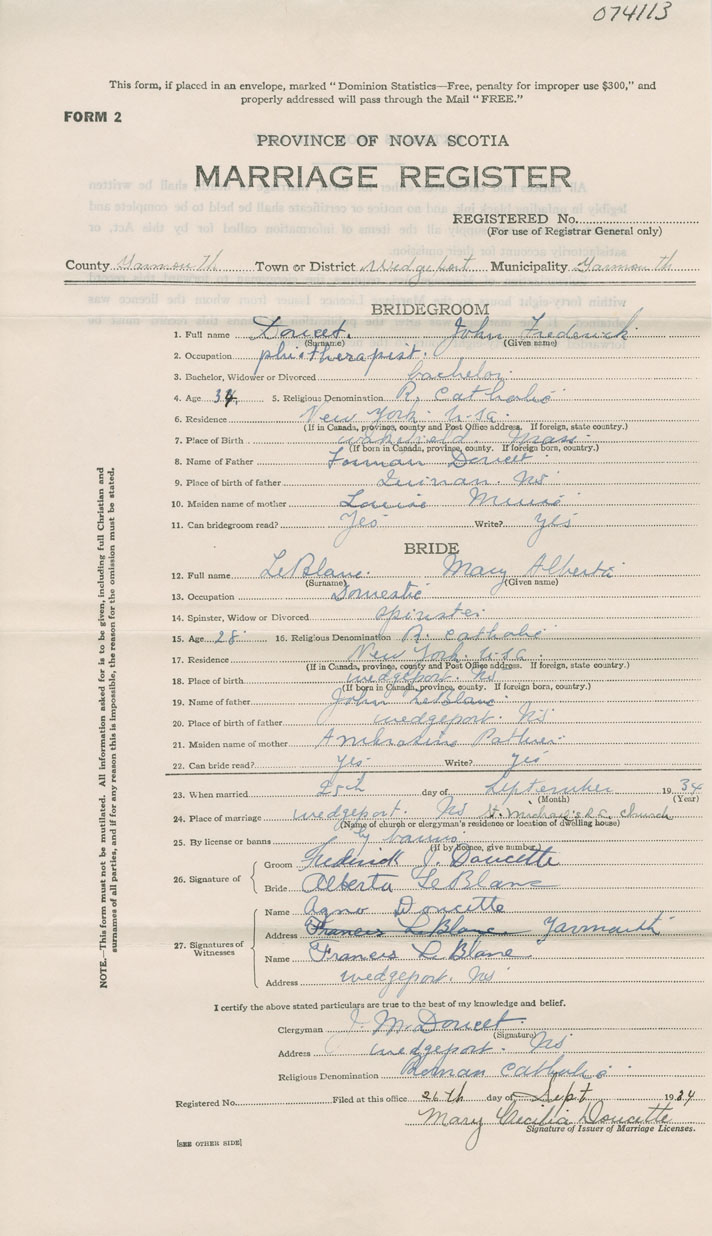 074113
This form, if placed in an envelope, marked "Dominion Statistics—Free, penalty for improper use $300," and
properly addressed will pass through the Mail "FREE."
FORM 2
PROVINCE OF NOVA SCOTIA
MARRIAGE REGISTER
REGISTERED No.
(For use of Registrar General only)
County Yarmouth Town or District Wedgeport Municipality Yarmouth
BRIDEGROOM
1. Full name Doucet. John Frederick
(Surname) (Given name)
2. Occupation
3. Bachelor, Widower or Divorced bachelor.
4. Age 34 5. Religious Denomination R. Catholic
6. Residence New York. U.S.a.
(If in Canada, province, county and Post Office address. If foreign, state country.)
7. Place of Birth wakefield. Mass.
(If born in Canada, province, county. If foreign born, country.)
8. Name of Father Forman Doucet.
9. Place of birth of father Quinan. NS
10. Maiden name of mother Louise Muise
11. Can bridegroom read? Yes Write? yes
BRIDE
12. Full name LeBlanc. Mary Alberta
(Surname) (Given name)
13. Occupation Domestic
14. Spinster, Widow or Divorced spinster.
15. Age 28 16. Religious Denomination R. Catholic
17. Residence New York. U.S.a.
(If in Canada, province, county and Post Office address. If foreign, state country.)
18. Place of birth wedgeport. NS
(If born in Canada, province, county. If foreign born, country.)
19. Name of father John LeBlanc
20. Place of birth of father wedgeport. NS
21. Maiden name of mother
22. Can bride read? yes Write? yes
23. When married 25th day of September 1934
(Month) (Year)
24. Place of marriage wedgeport. NS St. Michael's R.C. Church
(Name of church or clergyman's residence or location of dwelling house)
25. By license or banns by banns
(If by licence, give number)
26. Signature of
Groom Frederick J. Doucette
Bride Alberta LeBlanc
27. Signatures of Witnesses
Name Doucette
Address Francis LeBlanc Yarmouth
Name Francis LeBlanc
Address wedgeport. NS
I certify the above stated particulars are true to the best of my knowledge and belief.
Clergyman M. Doucet.
(Signature)
Address wedgeport. NS
Religious Denomination Roman Catholic
Registered No. Filed at this office 26th day of Sept 1934
Mary Cecilia Doucette
Signature of Issuer of Marriage Licenses.
[SEE OTHER SIDE]
NOTE.—This form must not be mutilated. All information asked for is to be given, including full Christian and
surnames of all parties, and if for any reason this is impossible, the reason for the omission must be stated.